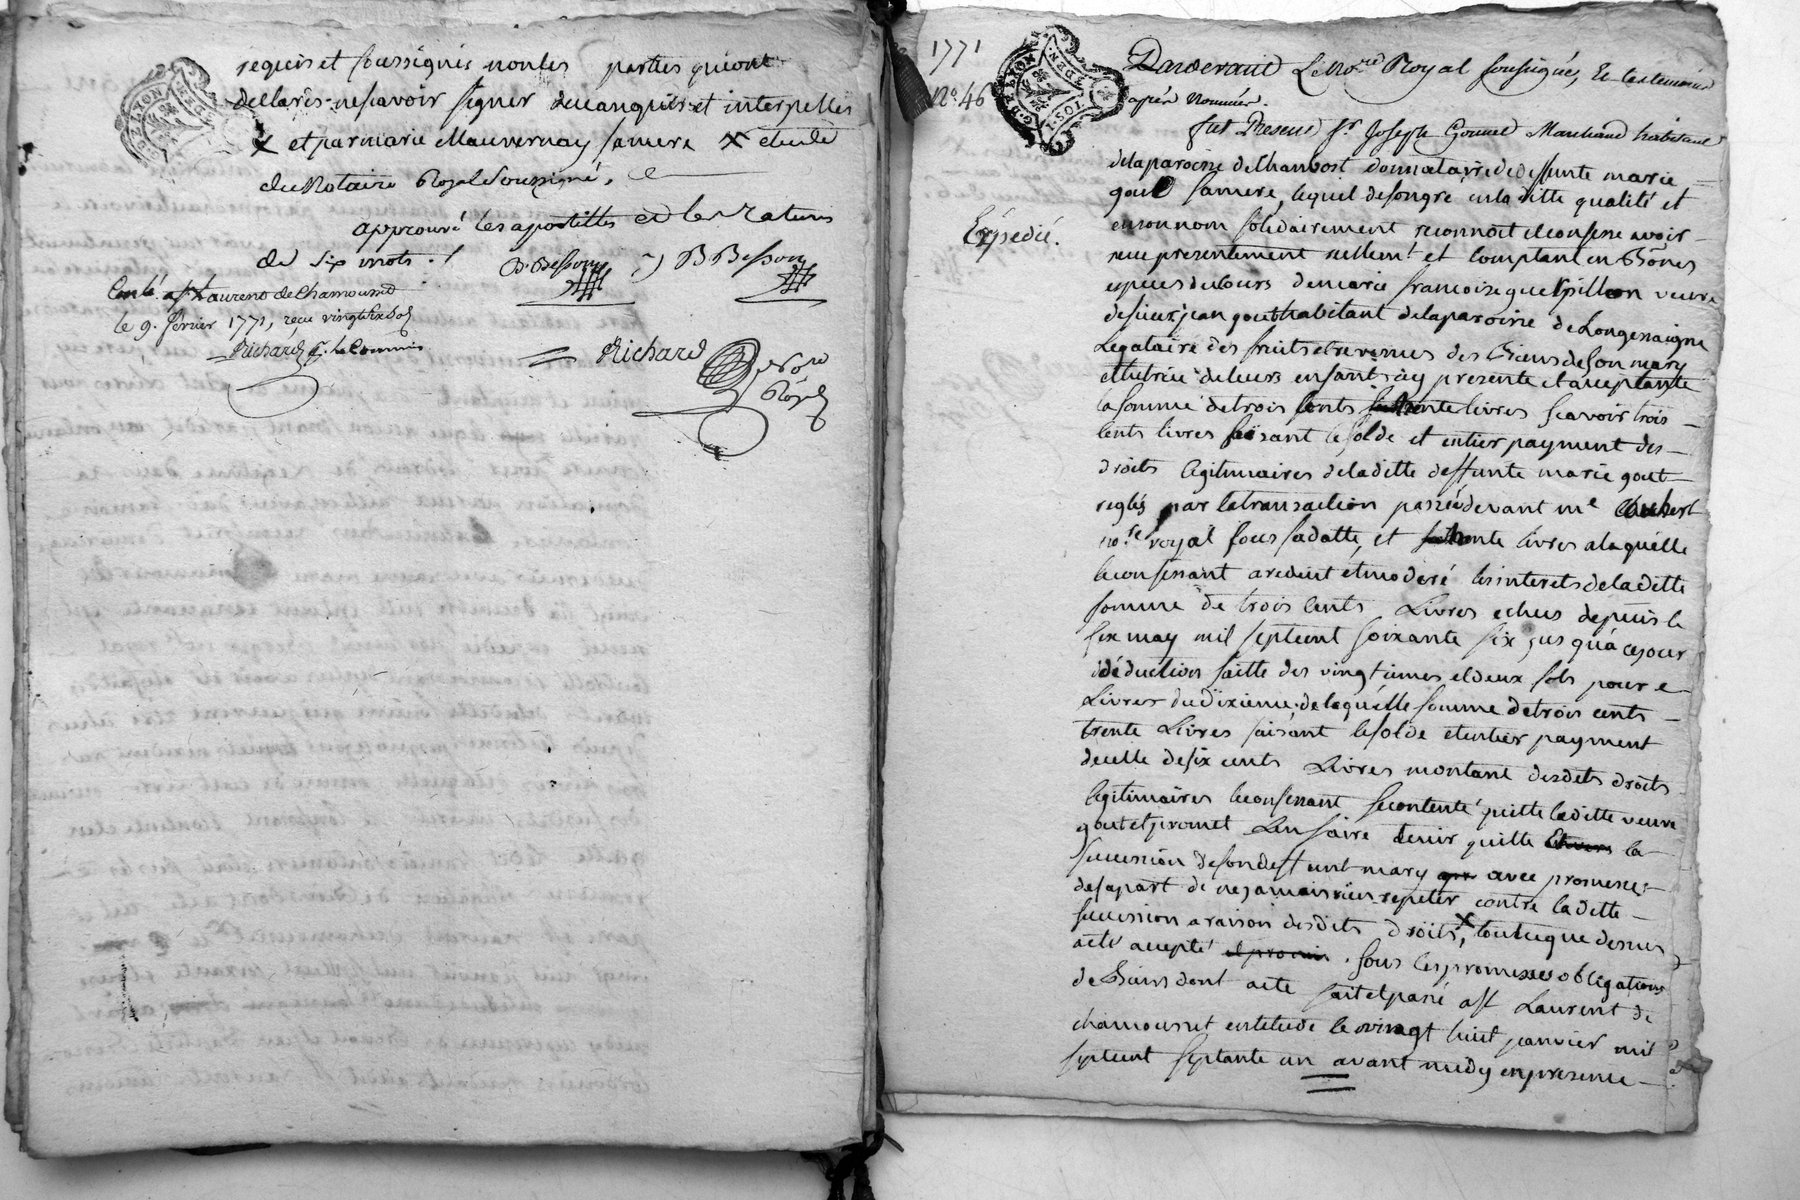 requis et soussignés non les parties qui ont
declarés ne scavoir signer de ce enquis et interpellés
X et par marie Mauvernay sa mere X etude
du Notaire Royal Soussigné,
approuvé les apostilles et les ratures
de six mots .
B Besson B Besson
Conlé. a St Laurent de Chamousset
le 9. fevrier 1771, reçu vingt six sols
Richard
Richard
No.re
Royal
1771
N.o 46
G. DE LYON
Expedié.
Pardevant Le No.re Royal soussigné, Et les temoins
après nommés.
fut Present Sr. Joseph Marchand habitant
de la paroisse de Chambost donnataire de deffunte marie
gout sa mere, lequel de son gré en la ditte qualité et
en son nom solidairement reconnoit et confesse avoir
reçu presentement reellemt. et comptant en Bones
especes du Cours de marie francoise veuve
de sieur jean gout habitant de la paroisse de Longessaigne
Legataire des fruits et revenus des Biens de son mary
et tutrice de leurs enfants icy presente et acceptante
la somme de trois Cents trente livres scavoir trois
Cents livres faisant le solde et entier payment des
droits legitimaires de la ditte deffunte marie gout
reglés par la transaction passée devant me
no.re royal sous sa datte, et trente livres a laquelle
le confessant a reduit et moderé les interets de la ditte
somme de trois Cents Livres echus depuis le
six may mil sept cent soixante six jusqu'a ce jour
déduction faitte des vingtiemes et deux sols pour
Livres du dixieme, de laquelle somme de trois cents
trente Livres faisant le solde et entier payment
de celle de six cents Livres montant desdits droits
legitimaires le confessant se contente quitte la ditte veuve
gout et promet L'en faire tenir quitte la
succession de son deffunt mary avec promesse
de sa part de ne jamais rien repeter contre la ditte
succession a raison desdits droits, X tout ce que dessus
acte accepté et promis . sous les promesses obligations
de Biens dont acte fait et passé a St Laurent de
chamousset en l'etude le vingt huit janvier mil
sept cent septante un avant midy en presence